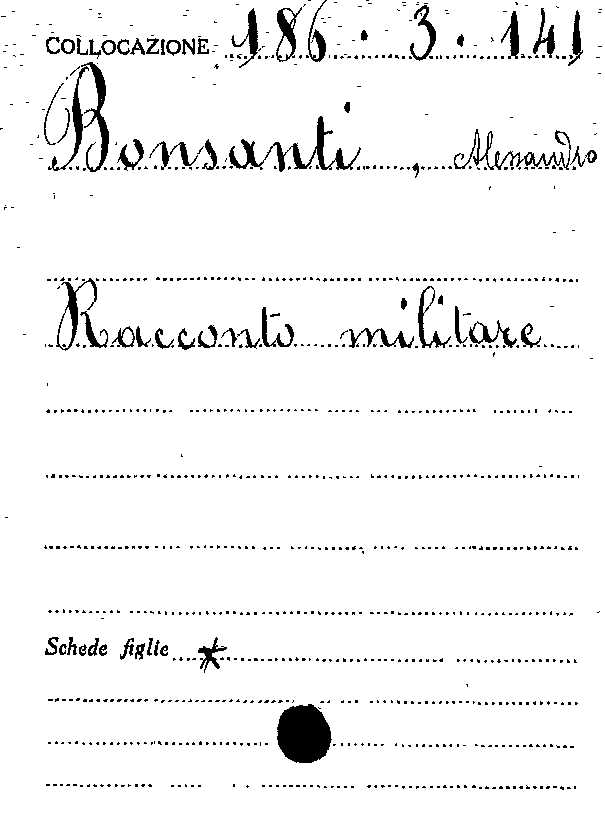 COLLOCAZIONE 186.3.141
Bonsanti, Alessandro
Racconto militare
Schede figlie *